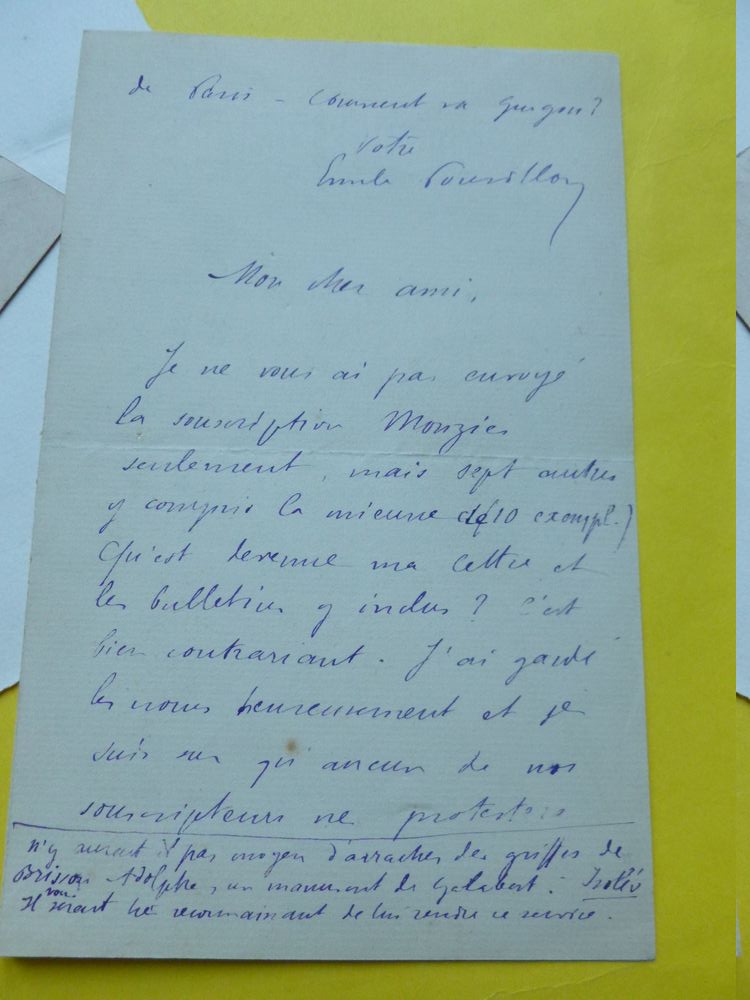 de Paris – Comment va
votre
Emile Pouvillon
Mon cher ami,
Je ne vous ai pas envoyé
la souscription Monziès
seulement, mais sept autres
y compris la mienne (10 exempl.)
Qu'est devenue ma lettre et
les bulletins y inclus ? C'est
bien contrariant. J'ai gardé
les noms heureusement et je
suis sur qu'aucun de nos
souscripteurs ne protestera
n'y aurait il pas moyen d'arracher des griffes de
Brisson Adolphe, un manuscrit de Galabert :
Il vous serait très reconnaissant de lui rendre ce service.